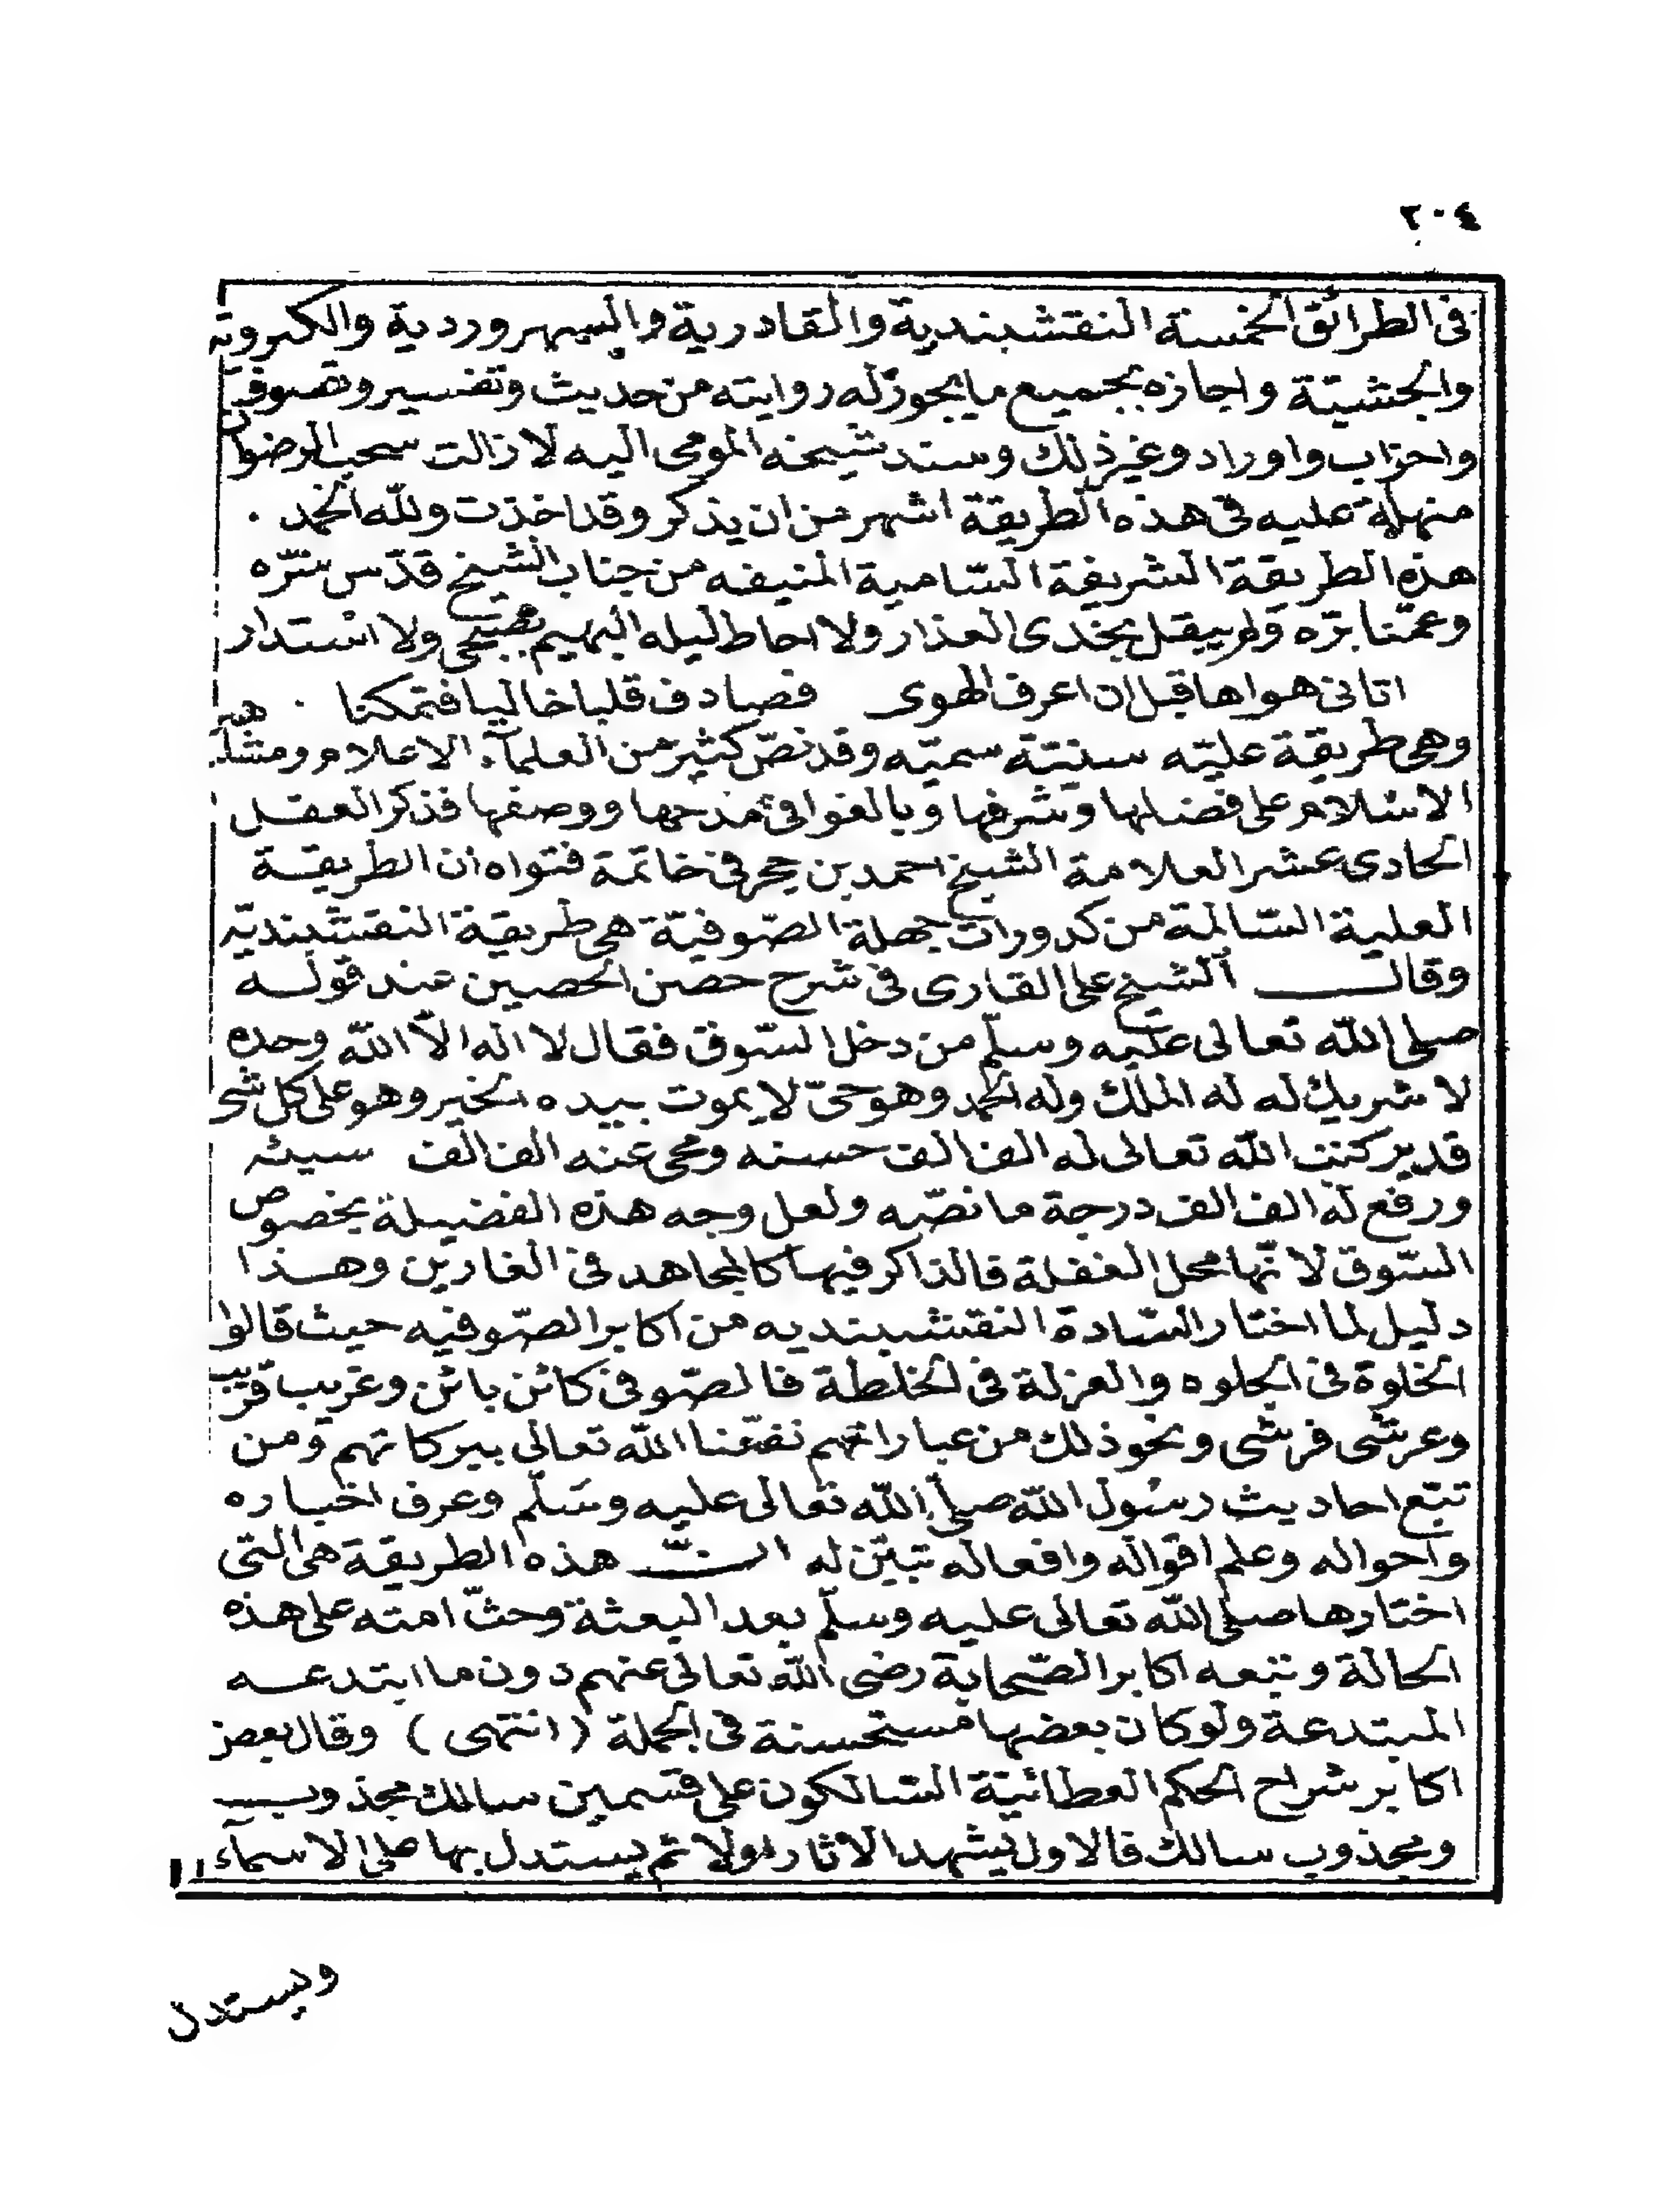 ٢٠٤
فى الطرائق الخمسة النقشبندية والقادرية والسهروردية والكبروية
والجشتية واجازه بجميع ما يجوز له روايته من حديث وتفسير وتصوف
واحزاب واوراد وغير ذلك وسند شيخه المومى اليه لا زالت سحب الرضوان
منهلة عليه فى هذه الطريقة اشهر من ان يذكر وقد اخذت ولله الحمد .
هذه الطريقة الشريفة السامية المنيفه من جناب الشيخ قدّس سرّه
وعمّنا برّه ولم يبقل بخدى العذار ولا احاط ليله البهيم بصبحى ولا استدار
اتانى هواها قبل ان اعرف الهوى فصادف قلبا خاليا فتمكنا .
وهى طريقة عليّه سنيّة سميّه وقد نصّ كثير من العلمآء الاعلام ومشايخ
الاسلام على فضلها وشرفها وبالغوا فى مدحها ووصفها فذكر العقل
الحادى عشر العلامة الشيخ احمد بن حجر فى خاتمة فتواه ان الطريقة
العلية السّالمة من كدورات جهلة الصّوفيّة هى طريقة النقشبنديّه
وقال الشيخ على القارى فى شرح حصن الحصين عند قوله
صلى الله تعالى عليه وسلّم من دخل السّوق فقال لا اله الّا الله وحده
لا شريك له له الملك وله الحمد وهو حىّ لا يموت بيده الخير وهو على كل شى
قدير كتب الله تعالى له الف الف حسنه ومحى عنه الف الف سيئه
ورفع له الف الف درجة ما نصّه ولعل وجه هذه الفضيلة بخصوص
السّوق لانّها محل الغفلة فالذاكر فيها كالمجاهد فى الغارين وهذا
دليل لما اختار السّادة النقشبنديه من اكابر الصّوفيه حيث قالوا
الخلوة فى الجلوه والعزلة فى الخلطة فالصّوفى كائن بائن وغريب قريب
وعرشى فرشى ونحو ذلك من عباراتهم نفعّنا الله تعالى ببركاتهم ومن
تبّع احاديث رسول الله صلى الله تعالى عليه وسَلّم وعرف اخباره
واحواله وعلم اقواله وافعاله تبيّن له انّ هذه الطريقة هى التى
اختارها صلى الله تعالى عليه وسلّم بعد البعثة وحثّ امته على هذه
الحالة وتبعه اكابر الصّحابة رضى الله تعالى عنهم دون ما ابتدعه
المبتدعة ولو كان بعضها مستحسنة فى الجملة (انتهى) وقال بعض
اكابر شراح الحكم العطائيّة السّالكون على قسمين سالك مجذوب
ومجذوب سالك فالاول يشهد الاثار اولا ثم يستدل بها على الاسمآء
ويستدل